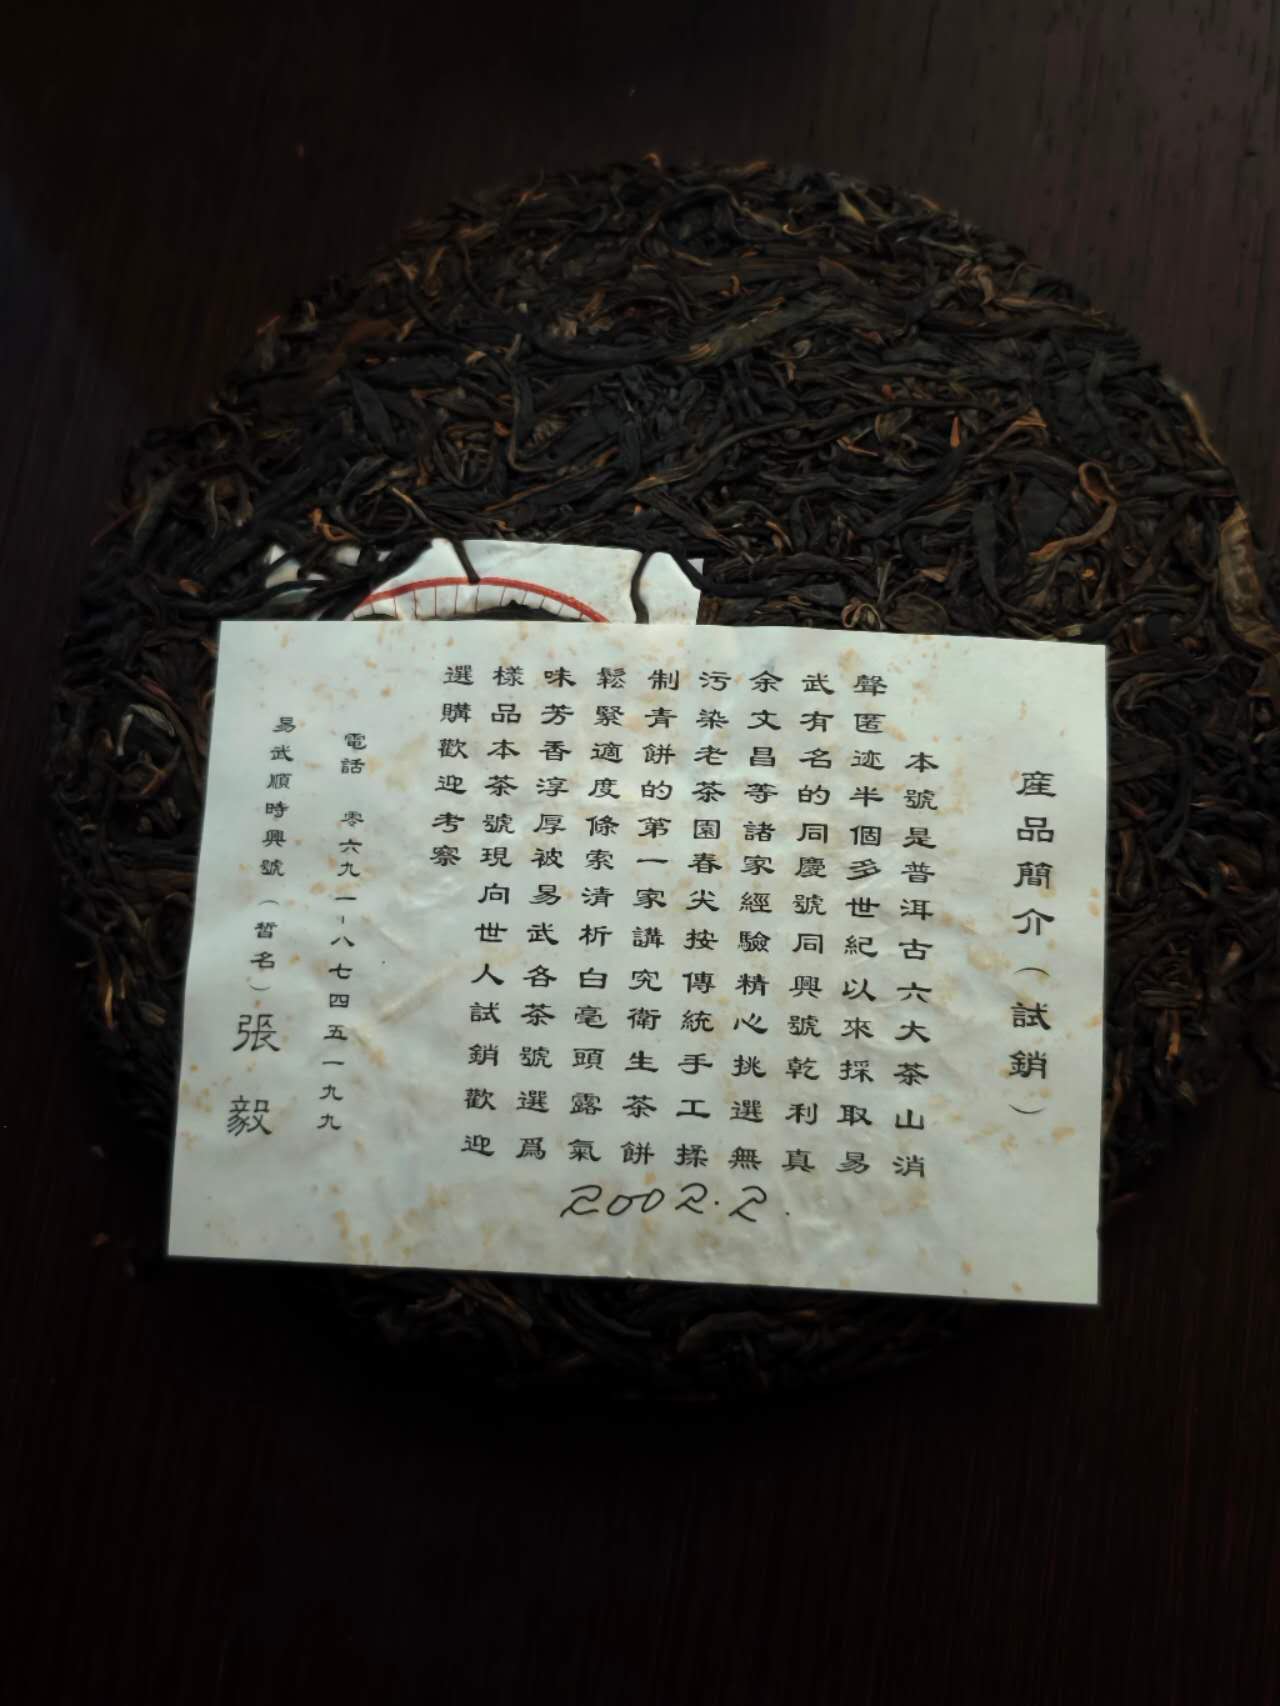 産品簡介（試銷）
本號是普洱古六大茶山消
聲匿迹半個多世紀以來採取易
武有名的同慶號同興號乾利真
余文昌等諸家經驗精心挑選無
污染老茶園春尖按傳統手工揉
制青餅的第一家講究衛生茶餅
鬆緊適度條索清析白毫頭露氣
味芳香淳厚被易武各茶號選爲
樣品本茶號現向世人試銷歡迎
選購歡迎考察
電話 零六九一-八七四五一九九
易武順時興號（暫名）張毅
2002.2.